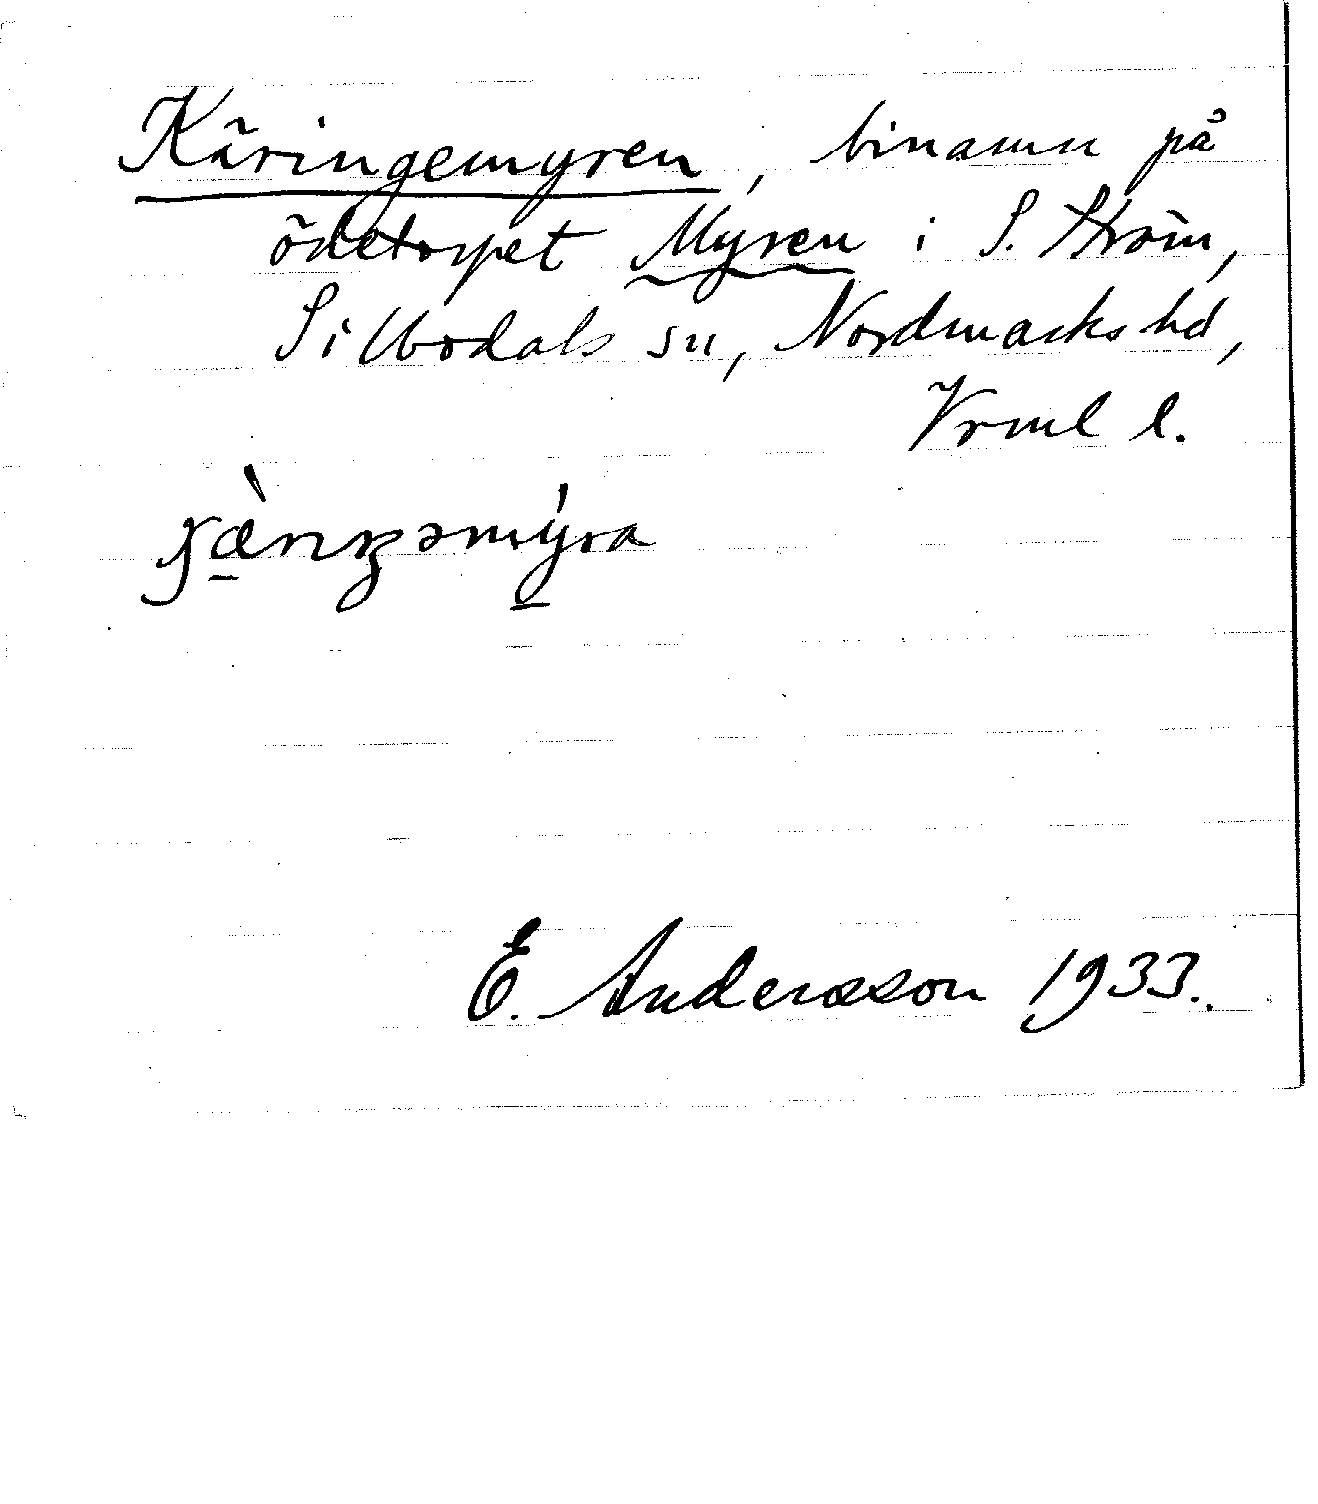 Käringemyren, binamn på
ödetorpet Myren i S. Ström,
Silbodals sn, Nordmarks hd,
Vrml l.
E. Andersson 1933.